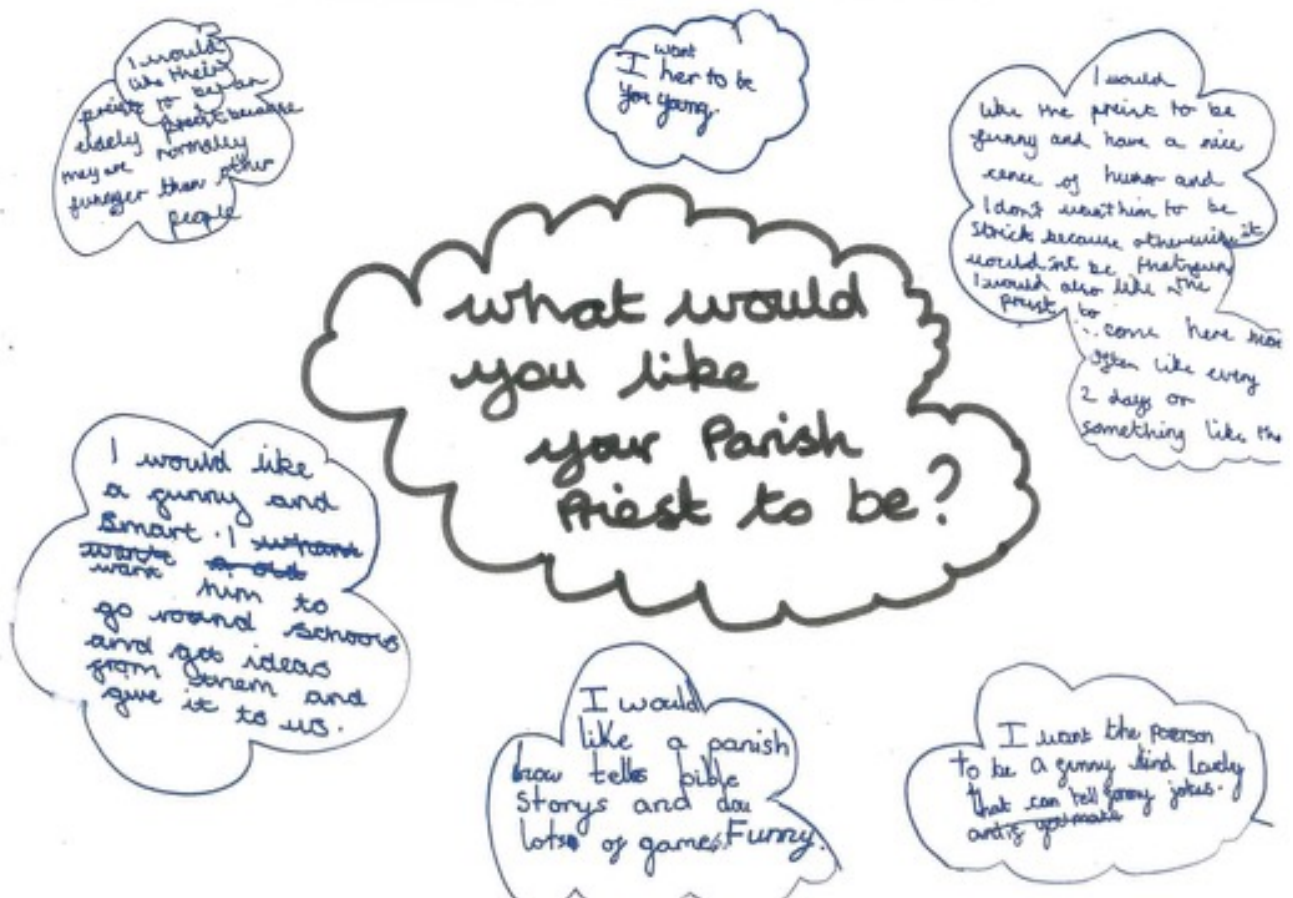 I would
like their
preist to be an
eldely preist because
they are normally
funnyer than other
people
I want her to be
young.
I would
like the preist to be
funny and have a nice
cence of humor and
I don't want him to be
strick because otherwise it
would'nt be that fun
I would also like the
preist to
...come here more
often like every
2 days or
something like tha
what would
you like
your Parish
Priest to be?
I would like
a funny and
smart. I
want him to
go round schools
and get ideas
from them and
give it to us.
I would
like a parish
how tells bible
storys and dou
lots of games. Funny.
I want the person
to be a funny kind Lovely
that can tell funny jokes.
and if you make